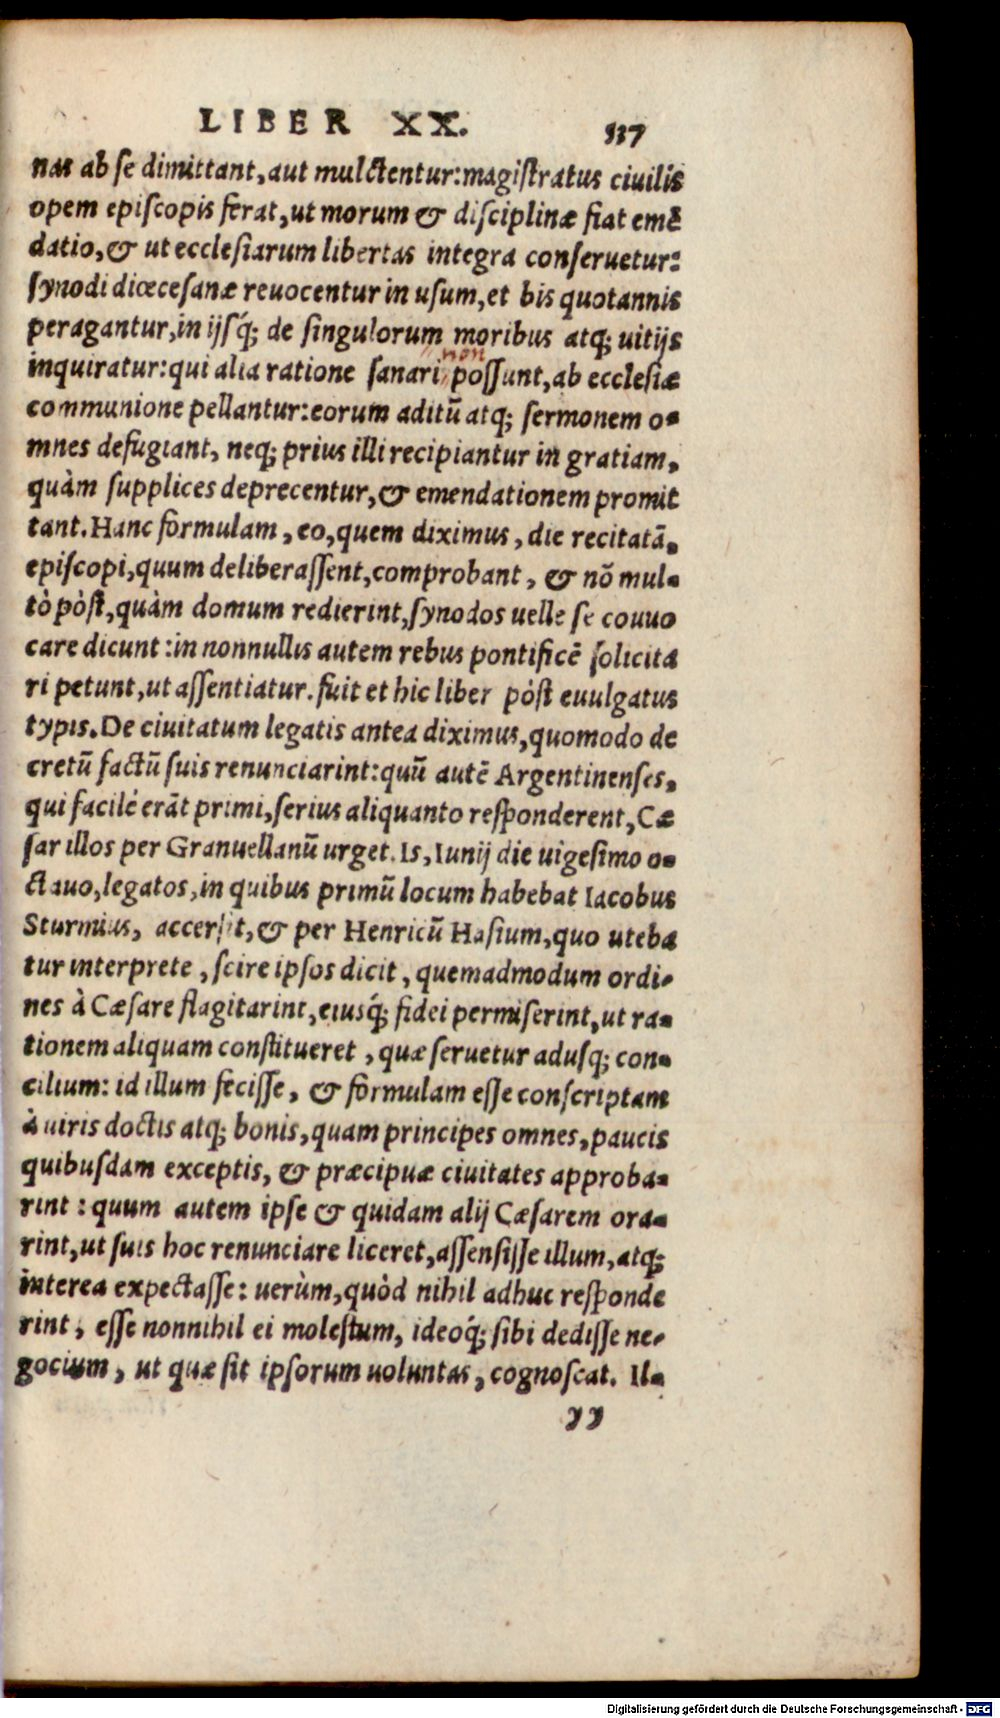 LIBER XX. 337
nas ab se dimittant, aut mulctentur: magistratus ciuilis
opem episcopis ferat, ut morum & disciplinæ fiat emē
datio, & ut ecclesiarum libertas integra conseruetur:
synodi diœcesanæ reuocentur in usum, et bis quotannis
peragantur, in ijsq́; de singulorum moribus atq; uitijs
inquiratur: qui alia ratione sanari non possunt, ab ecclesiæ
communione pellantur: eorum aditū atq; sermonem o-
mnes defugiant, neq; prius illi recipiantur in gratiam,
quàm supplices deprecentur, & emendationem promit
tant. Hanc formulam, eo, quem diximus, die recitatā,
episcopi, quum deliberassent, comprobant, & nō mul-
tò pòst, quàm domum redierint, synodos uelle se couuo
care dicunt: in nonnullis autem rebus pontificē solicita
ri petunt, ut assentiatur. fuit et hic liber pòst euulgatus
typis. De ciuitatum legatis antea diximus, quomodo de
cretū factū suis renunciarint: quū autē Argentinenses,
qui facilè erāt primi, serius aliquanto responderent, Cæ
sar illos per Granuellanū urget. Is, Iunij die uigesimo o-
ctauo, legatos, in quibus primū locum habebat Iacobus
Sturmius, accersit, & per Henricū Hasium, quo uteba
tur interprete, scire ipsos dicit, quemadmodum ordi-
nes à Cæsare flagitarint, eiusq́; fidei permiserint, ut ra-
tionem aliquam constitueret, quæ seruetur adusq; con-
cilium: id illum fecisse, & formulam esse conscriptam
à uiris doctis atq; bonis, quam principes omnes, paucis
quibusdam exceptis, & præcipuæ ciuitates approba-
rint: quum autem ipse & quidam alij Cæsarem ora-
rint, ut suis hoc renunciare liceret, assensisse illum, atq;
interea expectasse: uerùm, quòd nihil adhuc responde
rint, esse nonnihil ei molestum, ideoq́; sibi dedisse ne-
gocium, ut quæ sit ipsorum uoluntas, cognoscat. Il-
yy
Digitalisierung gefördert durch die Deutsche Forschungsgemeinschaft - DFG